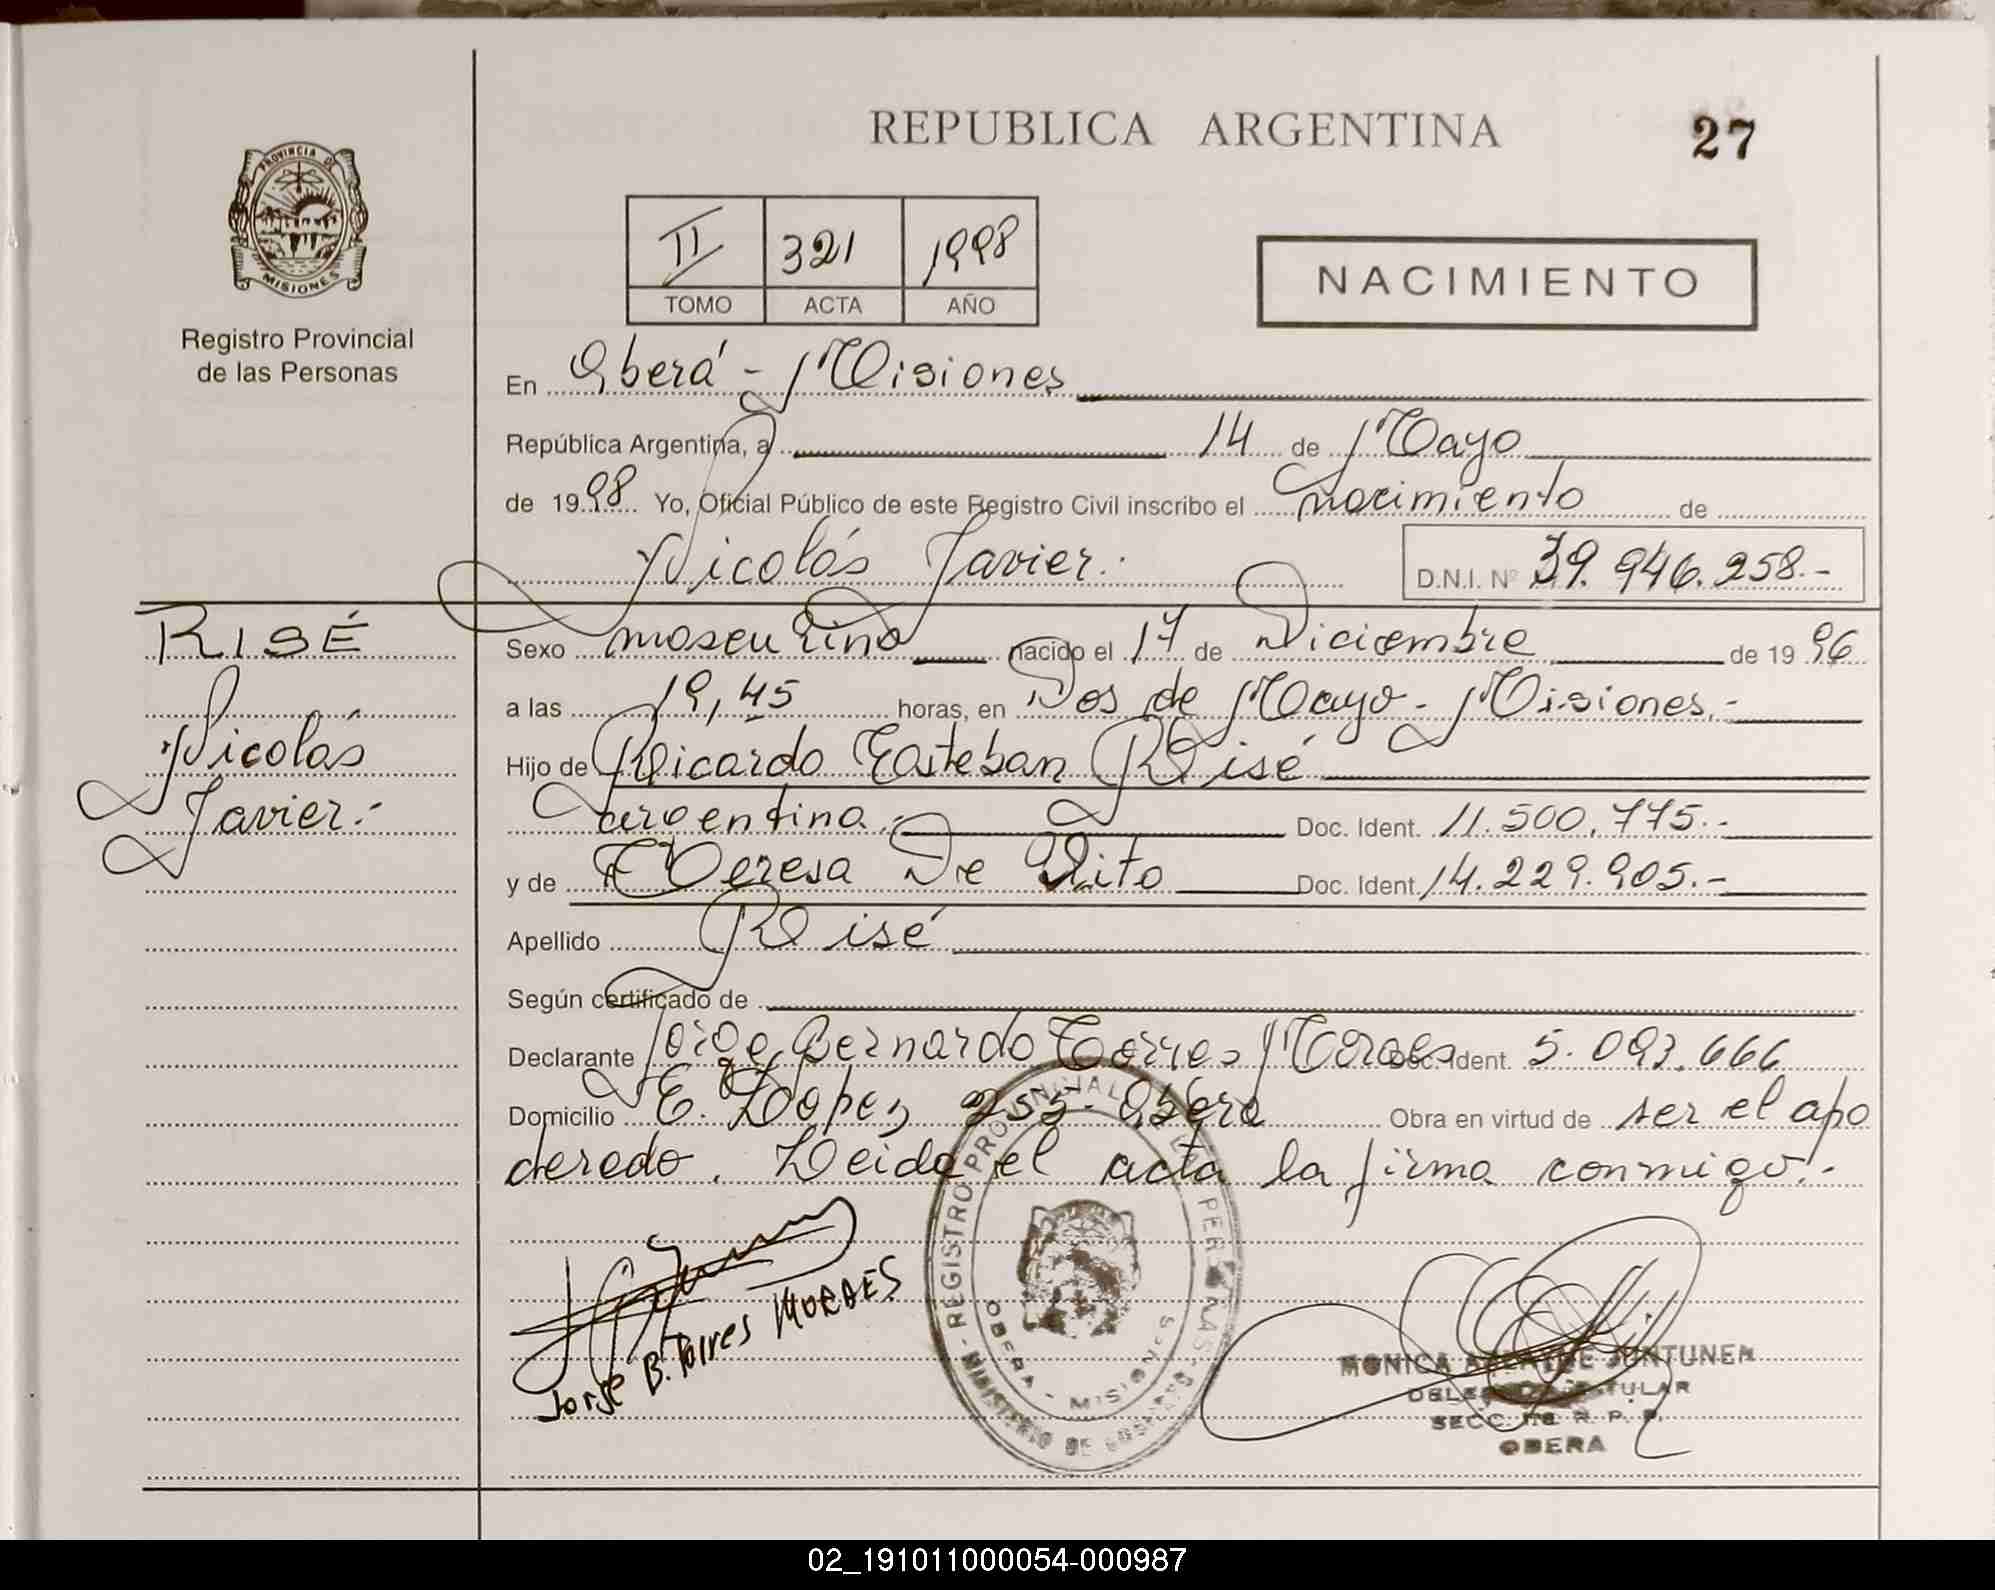 REPUBLICA ARGENTINA
27
PROVINCIA DE
MISIONES
Registro Provincial
de las Personas
II 321 1998
TOMO ACTA AÑO
NACIMIENTO
En Oberá - Misiones
República Argentina, a 14 de Mayo
de 1998 Yo, Oficial Público de este Registro Civil inscribo el nacimiento de
Nicolás Javier.
D.N.I. Nº 39.946.258.-
RISÉ
Nicolás
Javier.-
Sexo masculino nacido el 17 de Diciembre de 1996
a las 19,45 horas, en Dos de Mayo - Misiones.-
Hijo de Ricardo Esteban Risé
argentina.- Doc. Ident. 11.500.775.-
y de Teresa De Vito Doc. Ident. 14.229.905.-
Apellido Risé
Según certificado de
Declarante Jorge Bernardo Torres Moraes Doc. Ident. 5.093.666
Domicilio E. López 255 - Oberá Obra en virtud de ser el apo
derado. Leida el acta la firma conmigo.-
Jorge B. Torres MORAES
REGISTRO PROVINCIAL DE LAS PERSONAS
OBERA - MISIONES
MINISTERIO DE GOBIERNO
MONICA JUNTUNEN
TITULAR
SECC. R. P. P.
OBERA
02_191011000054-000987